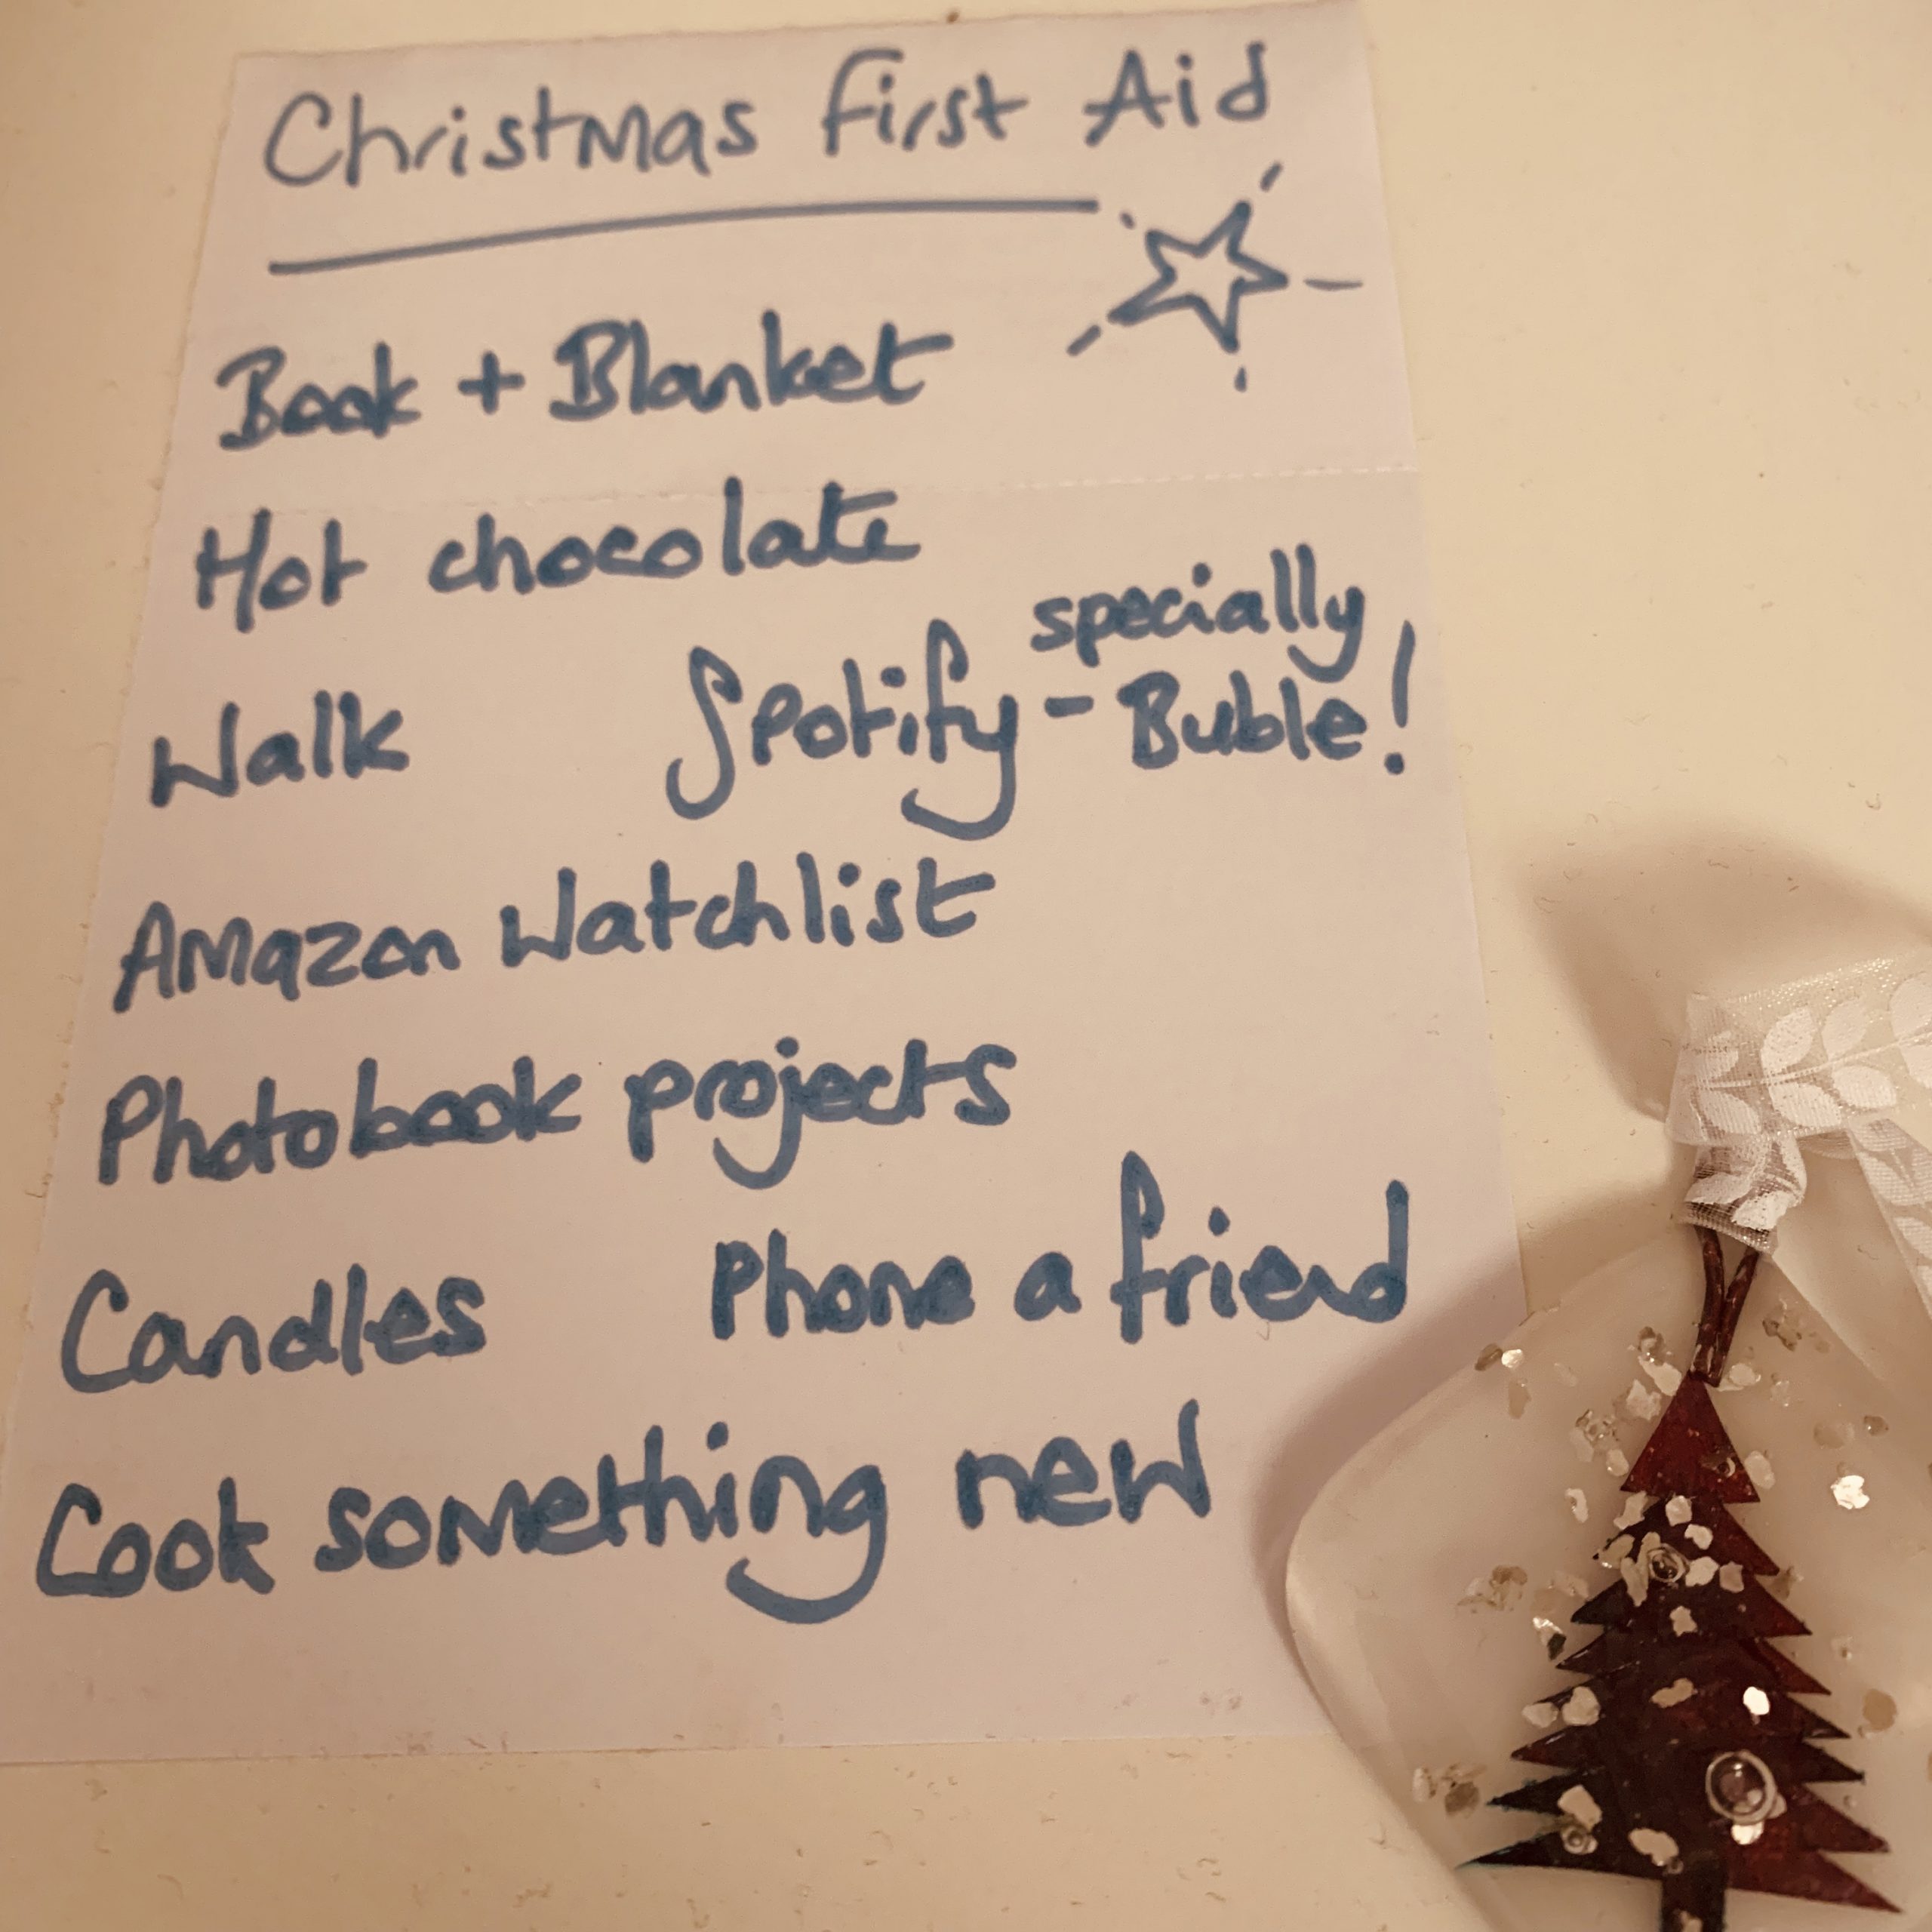 Christmas First Aid
Book + Blanket
Hot chocolate
specially
Walk Spotify - Buble!
Amazon Watchlist
Photobook projects
Candles Phone a friend
Cook something new